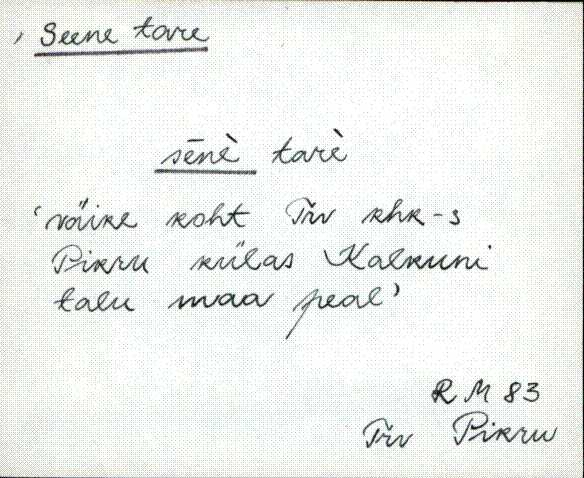 Seene tare
sēnè tarè
‘väike koht Trv khk-s
Pikru külas Kalkuni
talu maa peal’
RM 83
Trv Pikru